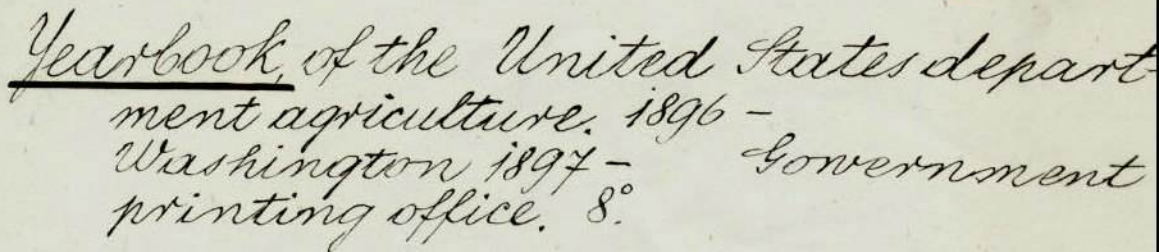 Yearbook, of the United States depart-
ment agriculture. 1896 -
Washington 1897 - Government
printing office. 8°.